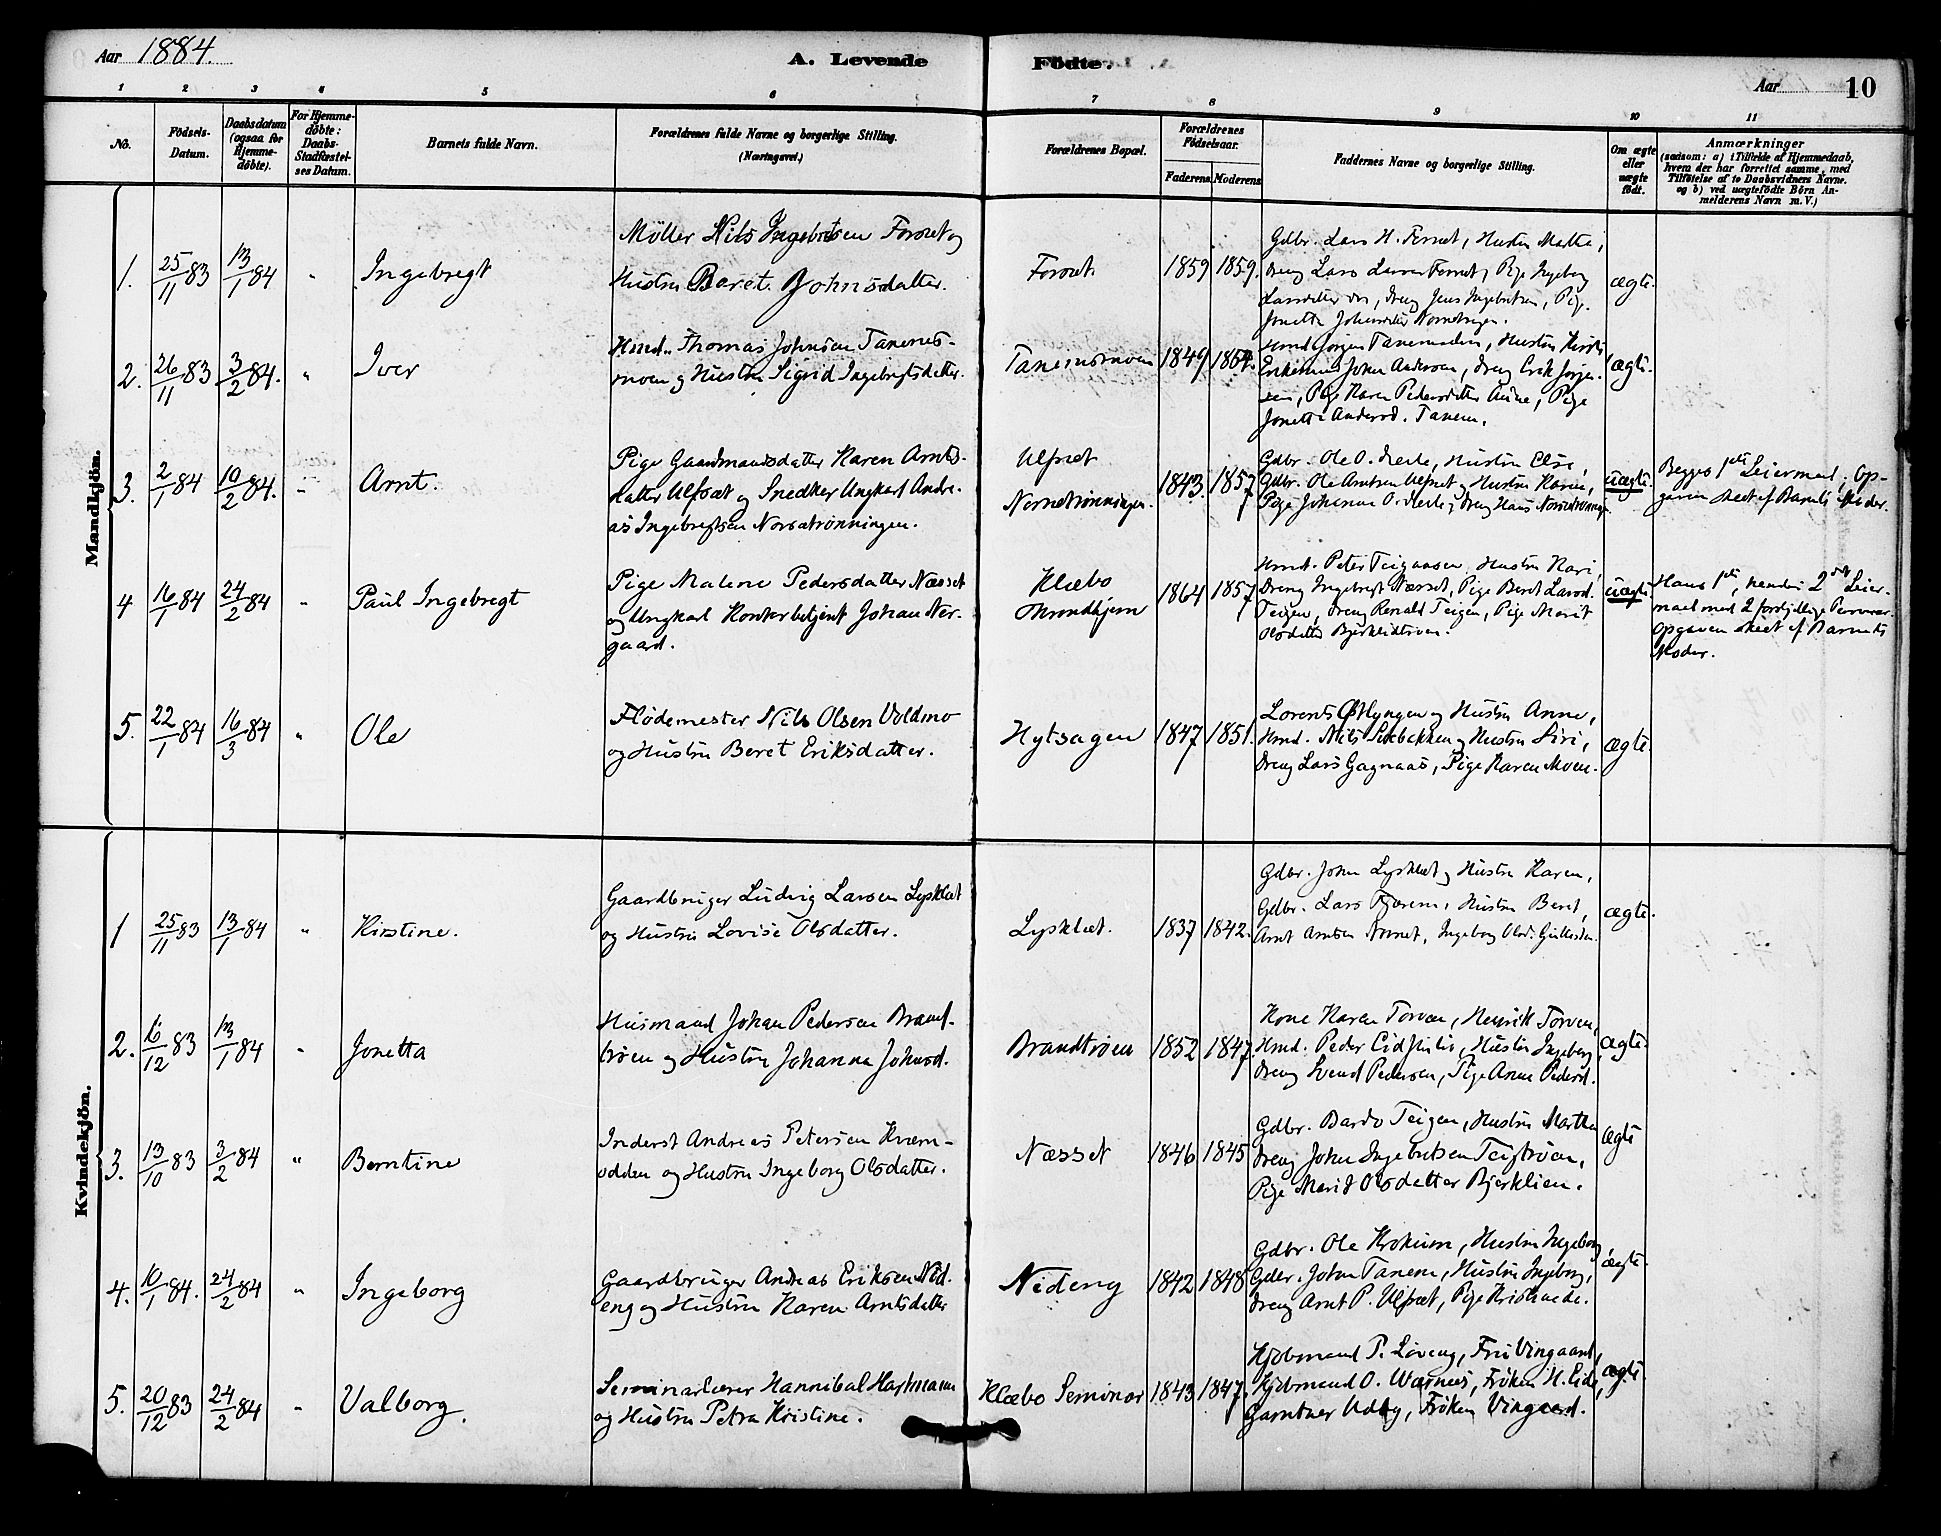 Aar 1884.
A. Levende
Födte.
Aar
10
1
2
3
4
5
6
7
8
9
10
11
No.
Födsels-
Datum.
Daabsdatum
(ogsaa for
Hjemme-
døbte).
For Hjemme-
døbte:
Daabs-
Stadfæstel-
ses Datum.
Barnets fulde Navn.
Forældrenes fulde Navne og borgerlige Stilling.
(Næringsvei.)
Forældrenes Bopæl.
Forældrenes
Födselsaar.
Faderens
Moderens
Faddernes Navne og borgerlige Stilling.
Om ægte
eller
uægte
födt.
Anmærkninger
(saasom: a) i Tilfælde af Hjemmedaab,
hvem der har forrettet samme, med
Tilføielse af to Daabsvidners Navne.
og b) ved uægtefödte Börn An-
melderens Navn m. V.)
Mandkjön.
1. 25/11 83 13/1 84 " Ingebregt
Møller Nils Ingebretsen Forset og
Hustru Beret Johnsdatter.
Forset 1859 1859.
Gdbr. Lars H. Forset, Hustru Malta,
dreng Lars Larsen Forset, Pige Ingeborg
Larsdatter do, dreng Jens Ingebretsen, Pige
ægte.
2. 26/11 83 3/2 84. " Iver
Hmd. Thomas Johnsen Tanems-
moen og Hustru Sigrid Ingebregtsdatter.
Tanemsmoen 1849 1854.
Enkemand John Andersen, dreng Erik Jørgen-
sen, Pige Karen Pedersdatter Aune, Pige
Jonetta Andersd. Tanem.
ægte.
3. 2/1 84 10/2 84. " Arnt.
Pige Gaardmandsdatter Karen Arnts-
datter Ulfset og Snedker Ungkarl Andre-
as Ingebregtsen Norsetrønningen.
Ulfset
Norsetrønningen. 1843. 1857
Gdbr. Ole O. Hustru Else,
Gdbr. Ole Arntsen Ulfset og Hustru Karen,
Pige Johanna O. dreng Hans
uægte.
Begges 1ste Leiermaal; Op-
gaven skeet af Barnets Moder.
4 16/1 84 24/2 84 " Paul Ingebregt
Pige Malene Pedersdatter Næsset
og Ungkarl Kontorbetjent Johan Ner-
gaard.
Klæbo
Throndhjem 1864 1857
Hmd. Peter Teigaasen, Hustru Kari,
dreng Ingebregt Næsset, Pige Beret Larsd.
Teigen, dreng Renald Teigen, Pige Marit
Olsdatter
uægte
Hans 1ste, hendes 2det Leier-
maal med 2 forskjellige Personer.
Opgaven skeet af Barnets
Moder.
5. 22/1 84 16/3 84 " Ole
Flødemester Nils Olsen Voldmo
og Hustru Beret Eriksdatter.
Hytsagen 1847 1851.
Lorents Østlyngen og Hustru Anne,
Hmd. Nils og Hustru Siri,
dreng Lars Gagnaas, Pige Karen Moen.
ægte.
Kvindekjön.
1 25/11 83 13/1 84 " Kirstine.
Gaardbruger Ludvig Larsen Lysklæt
og Hustru Lovise Olsdatter.
Lysklæt. 1837 1842.
Gdbr. John Lysklæt og Hustru Karen,
Gdbr. Lars Fjærem, Hustru Beret,
Arnt Arntsen Norset, Ingeborg Olsd.
ægte.
2. 16/12 83 13/1 84 " Jonetta
Husmand Johan Pedersen Brand-
trøen og Hustru Johanna Johnsd.
Brandtrøen 1852 1847.
Kone Karen Torven, Henrik Torven,
Hmd. Peder Hustru Ingeborg,
dreng Svend Pedersen, Pige Anne Pedersd.
ægte.
3. 13/10 83 3/2 84 " Berntine
Inderst Andreas Petersen Kvern-
odden og Hustru Ingeborg Olsdatter.
Næsset 1846 1845
Gdbr. Bardo Teigen, Hustru Martha
dreng John Ingebretsen Teigtrøen,
Pige Marit Olsdatter Bjerklien.
ægte
4. 10/1 84. 24/2 84 " Ingeborg
Gaardbruger Andreas Eriksen Nid-
eng og Hustru Karen Arntsdatter
Nideng 1842 1848
Gdbr. Ole Krokum, Hustru Ingeborg,
Gdbr. John Tanem, Hustru Ingeborg,
dreng Arnt P. Ulfset, Pige
ægte.
5. 20/12 83 24/2 84 " Valborg.
Seminarlærer Hannibal Hartmann
og Hustru Petra Kristine.
Klæbo Seminar 1843 1847.
Kjøbmand P. Løveng, Fru Vingaard,
Kjøbmand O. Wærnes, Frøken H. Lide,
Gartner Udby, Frøken Vingaard.
ægte